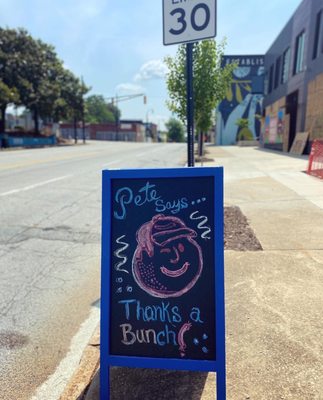 30
ESTABLIS
Pete
Says...
Thanks a
Bunch!